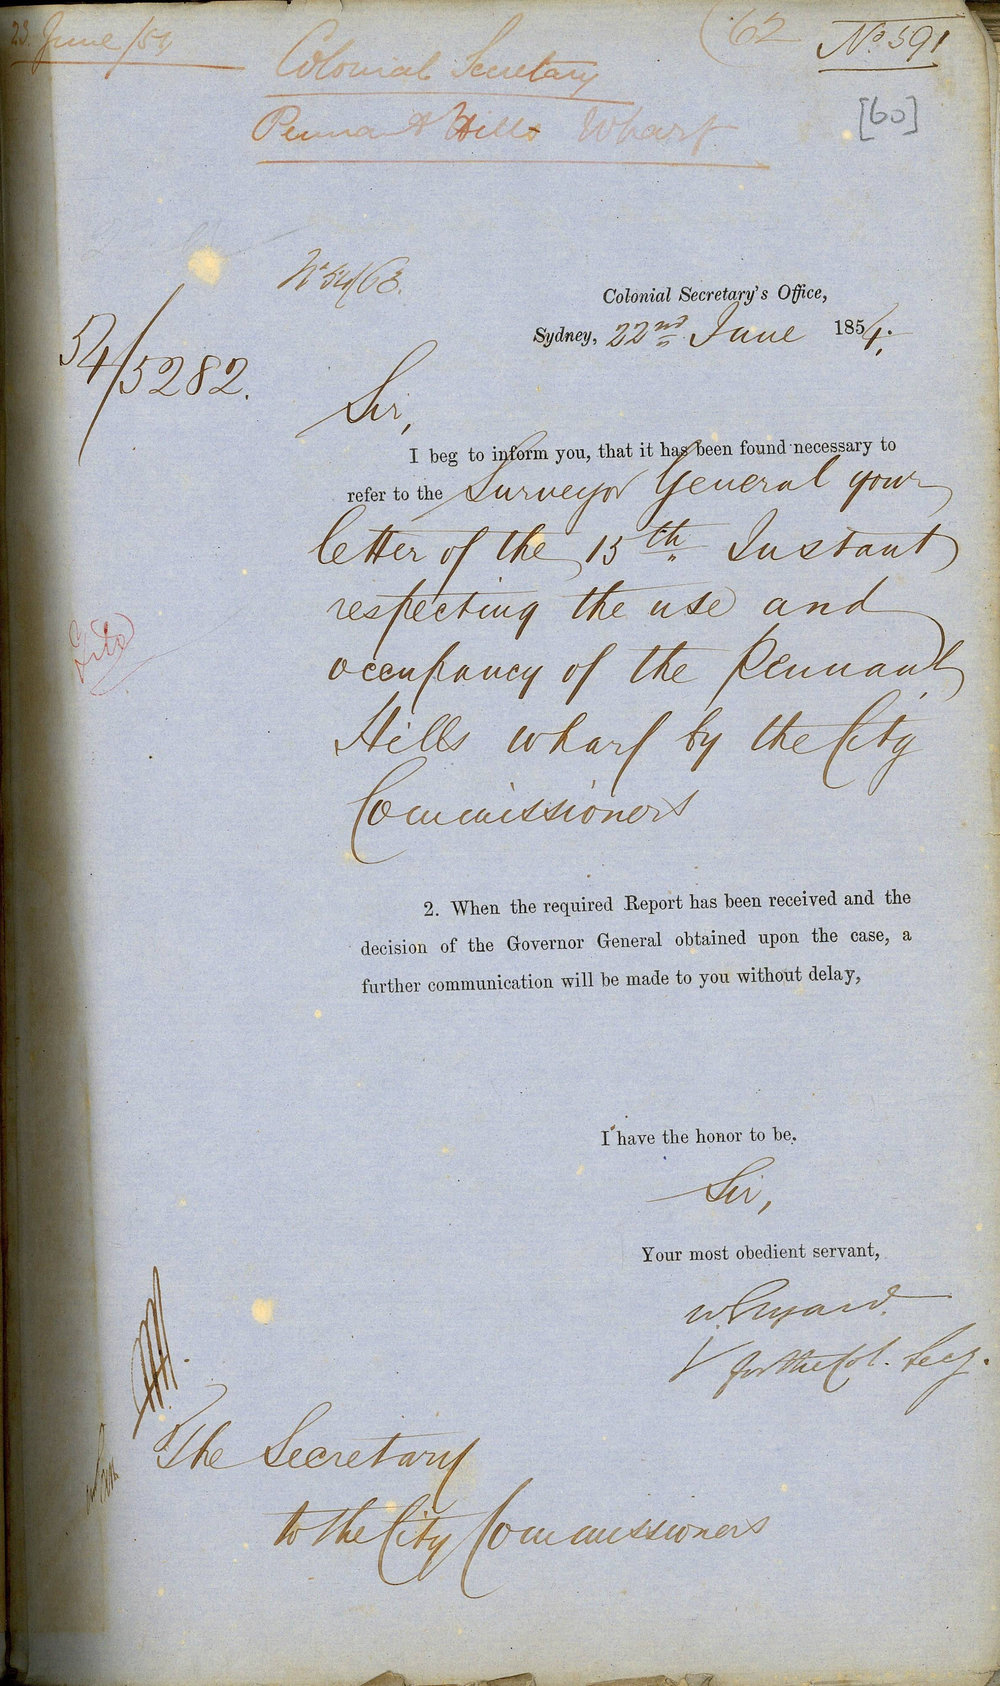 23 June /54
(62
No 591
Colonial Secretary
Pennant Hills Wharf
[60]
No 54/63.
Colonial Secretary's Office,
Sydney, 22nd June 1854.
54/5282.
Sir,
I beg to inform you, that it has been found necessary to
refer to the Surveyor General your
letter of the 15th Instant
respecting the use and
occupancy of the Pennant
Hills wharf by the City
Commissioners
2. When the required Report has been received and the
decision of the Governor General obtained upon the case, a
further communication will be made to you without delay,
I have the honor to be.
Sir,
Your most obedient servant,
for the Col. Secy.
The Secretary
to the City Commissioners